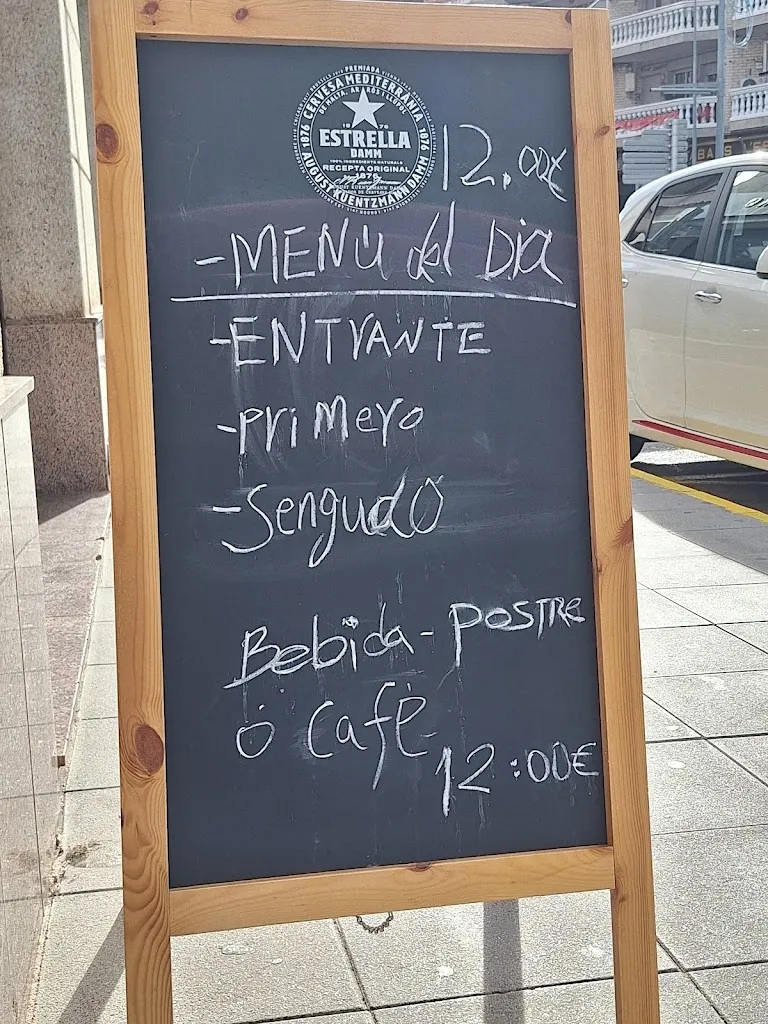 PREMIADA
CERVESA MEDITERRÀNIA
DE MALTA, ARRÒS I LLÚPOL
1876
ESTRELLA
DAMM
100% INGREDIENTS NATURALS
RECEPTA ORIGINAL
1876
AUGUST KUENTZMANN DAMM
12,00€
-MENÚ del Dia
-ENTrANTE
-PriMero
-SenguddO
Bebida- POSTRE
ó Cafè
12:00€
BAR